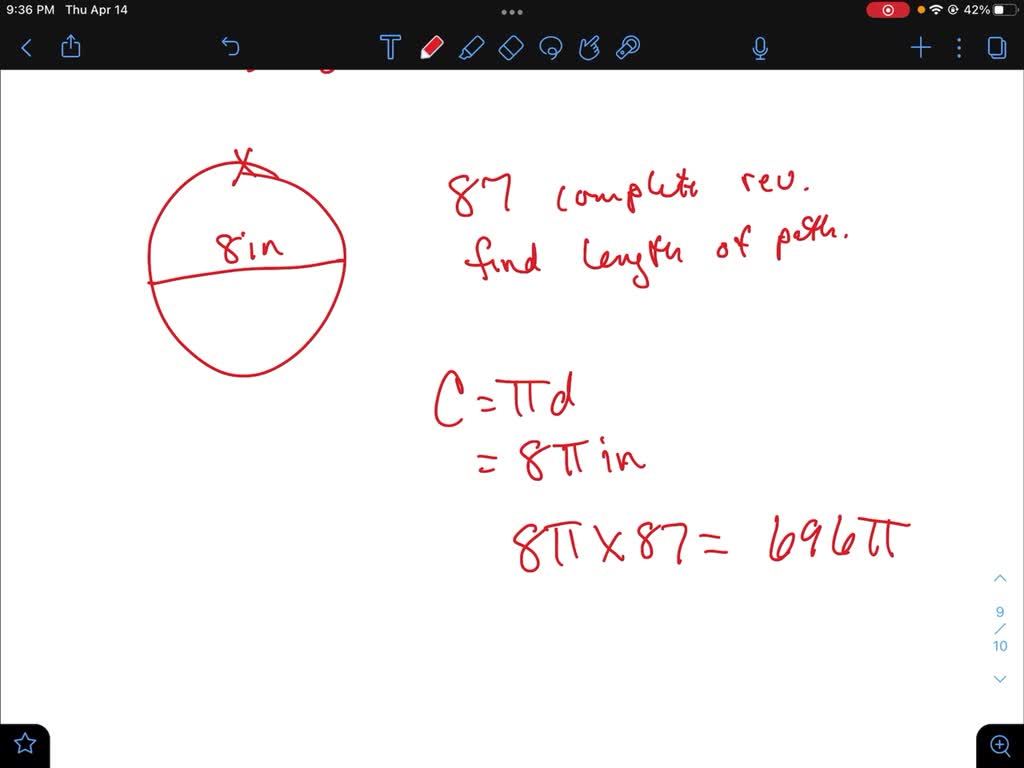 9:36 PM Thu Apr 14
42%
T
8in
87 complete rev.
find length of path.
C = πd
= 8π in
8π × 87 = 696π
9
/
10